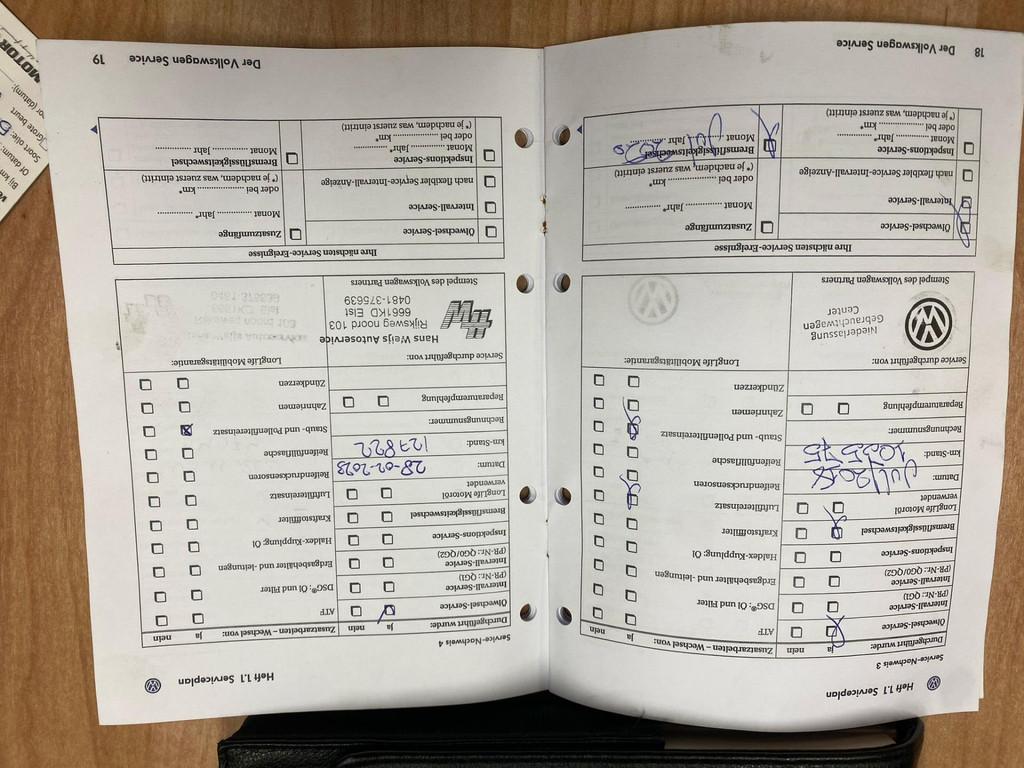 Heft 1.1 Serviceplan
Service-Nachweis 3
Durchgeführt wurde:
ja
nein
Ölwechsel-Service
Intervall-Service
(PR-Nr.: QG1)
Intervall-Service
(PR-Nr.: QG0/QG2)
Inspektions-Service
Bremsflüssigkeitswechsel
LongLife Motoröl
verwendet
Datum:
Juli 2018
km-Stand:
103575
Rechnungsnummer:
Reparaturempfehlung
Zusatzarbeiten – Wechsel von:
ja
nein
ATF
DSG®: Öl und Filter
Erdgasbehälter und -leitungen
Haldex-Kupplung: Öl
Kraftstofffilter
Luftfiltereinsatz
Reifendrucksensoren
Reifenfüllflasche
Staub- und Pollenfiltereinsatz
Zahnriemen
Zündkerzen
Service durchgeführt von:
LongLife Mobilitätsgarantie:
Niederlassung
Gebrauchtwagen
Center
Stempel des Volkswagen Partners
Ihre nächsten Service-Ereignisse
Ölwechsel-Service
Intervall-Service
nach flexibler Service-Intervall-Anzeige
Inspektions-Service
Monat ............... Jahr* ...............
oder bei ............... km*
(* je nachdem, was zuerst eintritt)
Zusatzumfänge
Monat ............... Jahr* ...............
oder bei ............... km*
(* je nachdem, was zuerst eintritt)
Bremsflüssigkeitswechsel
Monat ............... Jahr ...............
Juli 2020
18
Der Volkswagen Service
Heft 1.1 Serviceplan
Service-Nachweis 4
Durchgeführt wurde:
ja
nein
Ölwechsel-Service
Intervall-Service
(PR-Nr.: QG1)
Intervall-Service
(PR-Nr.: QG0/QG2)
Inspektions-Service
Bremsflüssigkeitswechsel
LongLife Motoröl
verwendet
Datum:
28-02-2023
km-Stand:
127822
Rechnungsnummer:
Reparaturempfehlung
Zusatzarbeiten – Wechsel von:
ja
nein
ATF
DSG®: Öl und Filter
Erdgasbehälter und -leitungen
Haldex-Kupplung: Öl
Kraftstofffilter
Luftfiltereinsatz
Reifendrucksensoren
Reifenfüllflasche
Staub- und Pollenfiltereinsatz
Zahnriemen
Zündkerzen
Service durchgeführt von:
LongLife Mobilitätsgarantie:
Hans Weijs Autoservice
Rijksweg noord 103
6661KD Elst
0481-375639
Stempel des Volkswagen Partners
Ihre nächsten Service-Ereignisse
Ölwechsel-Service
Intervall-Service
nach flexibler Service-Intervall-Anzeige
Inspektions-Service
Monat ............... Jahr* ...............
oder bei ............... km*
(* je nachdem, was zuerst eintritt)
Zusatzumfänge
Monat ............... Jahr* ...............
oder bei ............... km*
(* je nachdem, was zuerst eintritt)
Bremsflüssigkeitswechsel
Monat ............... Jahr ...............
Der Volkswagen Service
19
Bij km
Of datum:
Soort olie:
Grote beurt
MOTOR